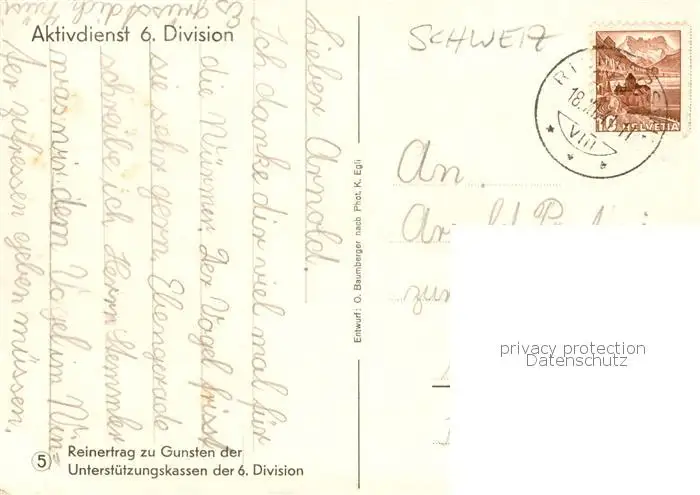 Aktivdienst 6. Division
Lieber Arnold.
Ich danke dir viel mal für
die Würmer. Der Vogel frisst
sie sehr gern. Ebengerade
schreibe ich Herrn Stemmler
was wir dem Vogel im Win-
ter zufressen geben müssen.
Es grüsst dich
5 Reinertrag zu Gunsten der
Unterstützungskassen der 6. Division
Entwurf: O. Baumberger nach Phot. K. Egli
SCHWEIZ
10 HELVETIA
18.
VIII
An
zum
privacy protection
Datenschutz